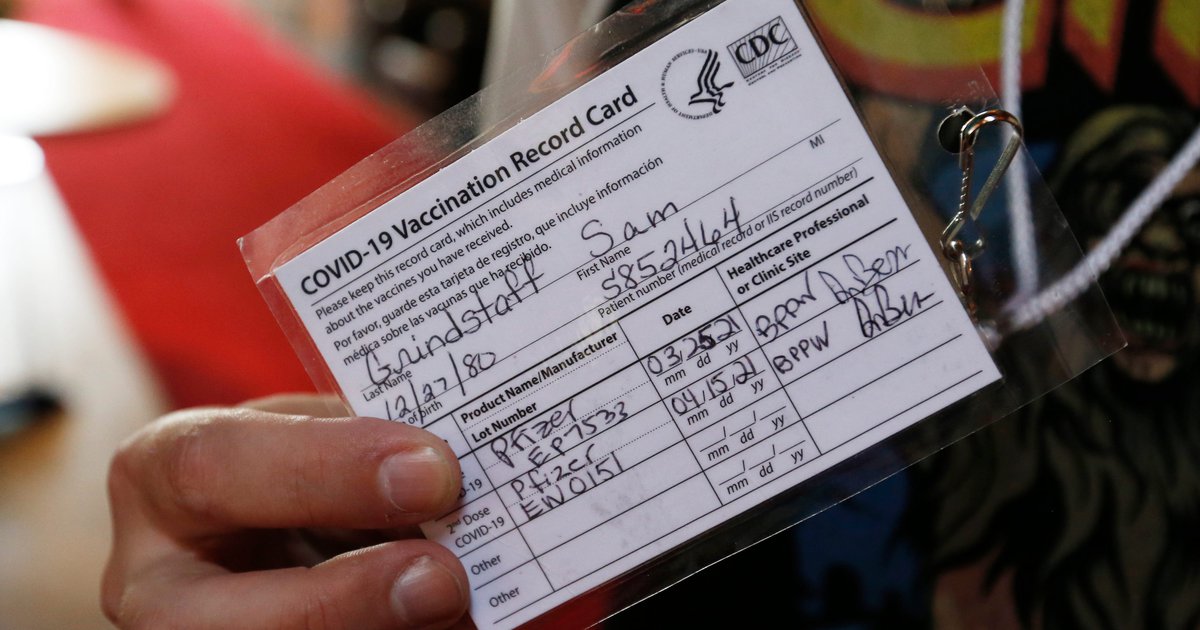 CDC
COVID-19 Vaccination Record Card
Please keep this record card, which includes medical information
about the vaccines you have received.
Por favor, guarde esta tarjeta de registro, que incluye información
médica sobre las vacunas que ha recibido.
Grindstaff Sam
Last Name First Name MI
12/27/80 5852464
of birth Patient number (medical record or IIS record number)
Product Name/Manufacturer Date Healthcare Professional
Lot Number or Clinic Site
Pfizer 03/25/21 BPPW
EP7533 mm dd yy
Pfizer 04/15/21 BPPW
2nd Dose EW0151 mm dd yy
COVID-19
Other mm dd yy
Other mm dd yy